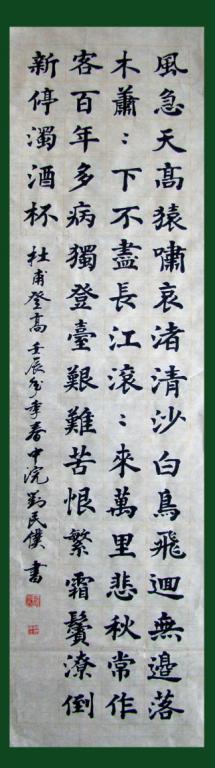 風急天高猿嘯哀渚清沙白鳥飛迴無邊落
木蕭:下不盡長江滾:來萬里悲秋常作
客百年多病獨登臺艱難苦恨繁霜鬢潦倒
新停濁酒杯 杜甫登高 壬辰年季春中浣劉民僕書